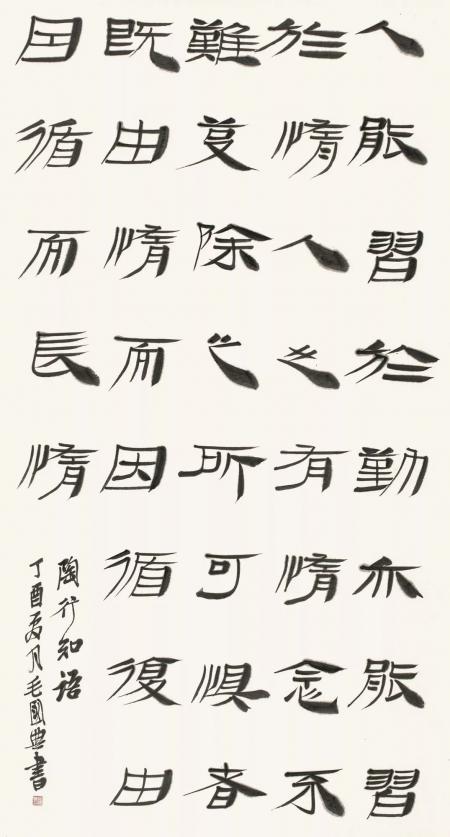 人能習於勤亦能習
於惰人之有惰念不
難芟除之所可惧者
既由惰而因循復由
因循而長惰
陶行知语
丁酉夏月毛國典書